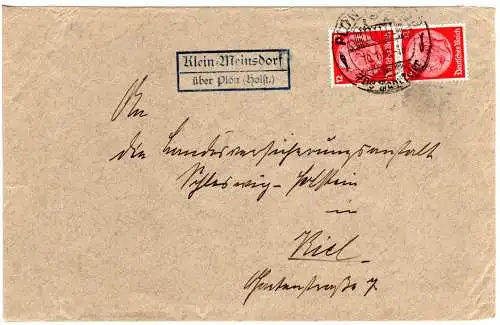 Klein-Meinsdorf
über Plön (Holst.)
PLÖN
12
Deutsches Reich
Deutsches Reich
An
die Landesversicherungsanstalt
Schleswig-Holstein
in
Kiel.
7